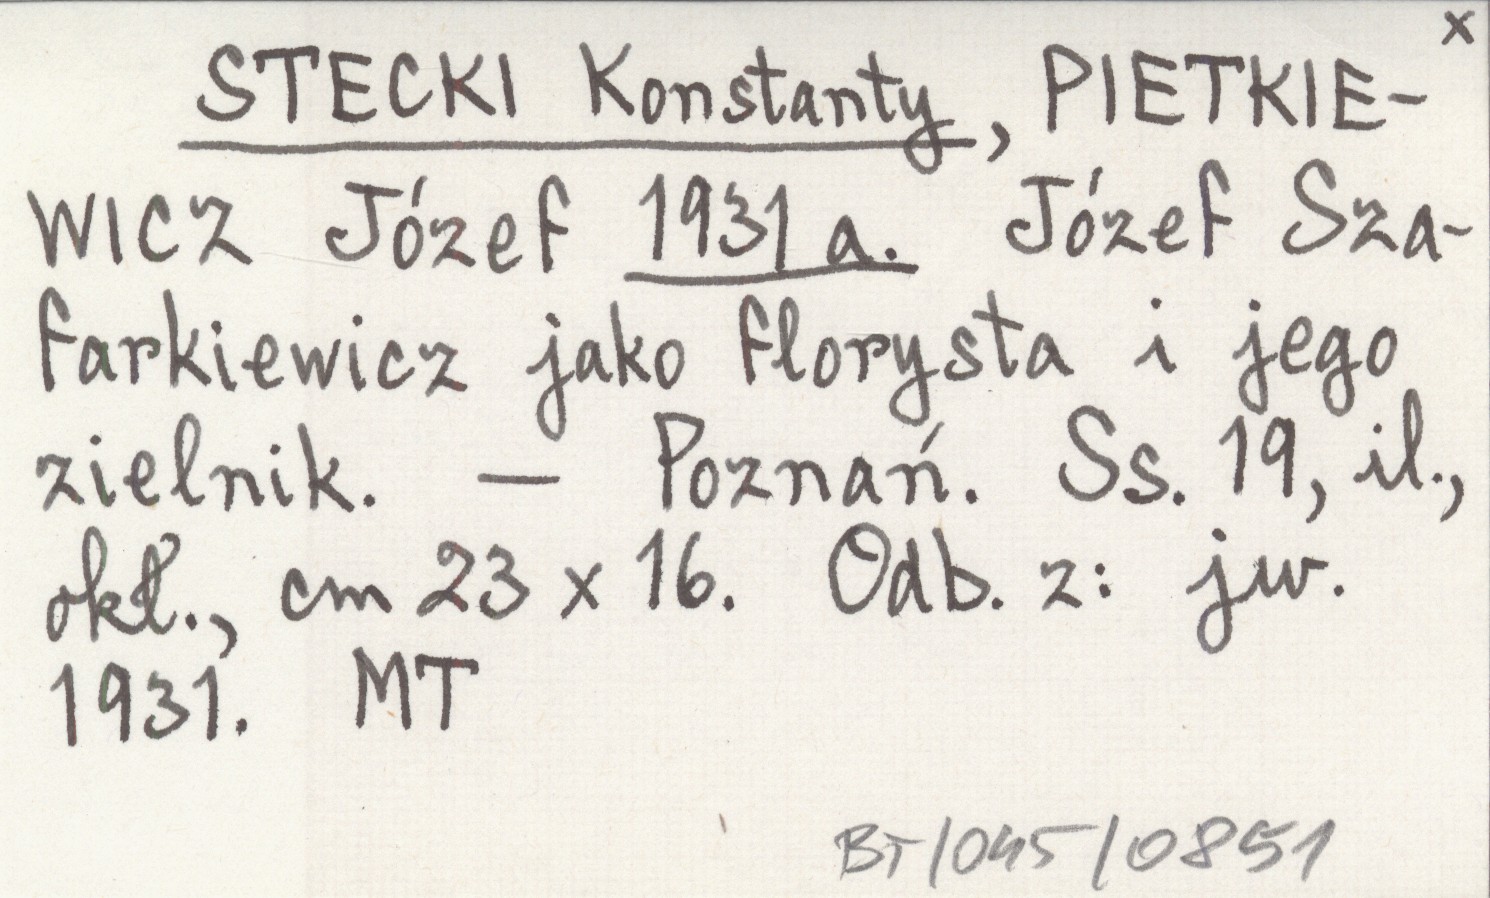 x
STECKI Konstanty, PIETKIE-
WICZ Józef 1931 a. Józef Sza-
farkiewicz jako florysta i jego
zielnik. — Poznań. Ss. 19, il.,
okł., cm 23 x 16. Odb. z: jw.
1931. MT
BT/045/0851